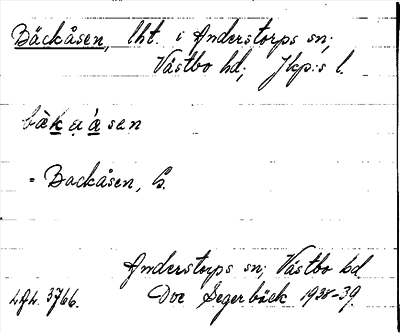 Bäckåsen, lht. i Anderstorps sn;
Västbo hd; Jkp:s l.
bàkaåsen
= Backåsen, G.
Anderstorps sn; Västbo hd
Doc Segerbäck 1938-39.
3766.